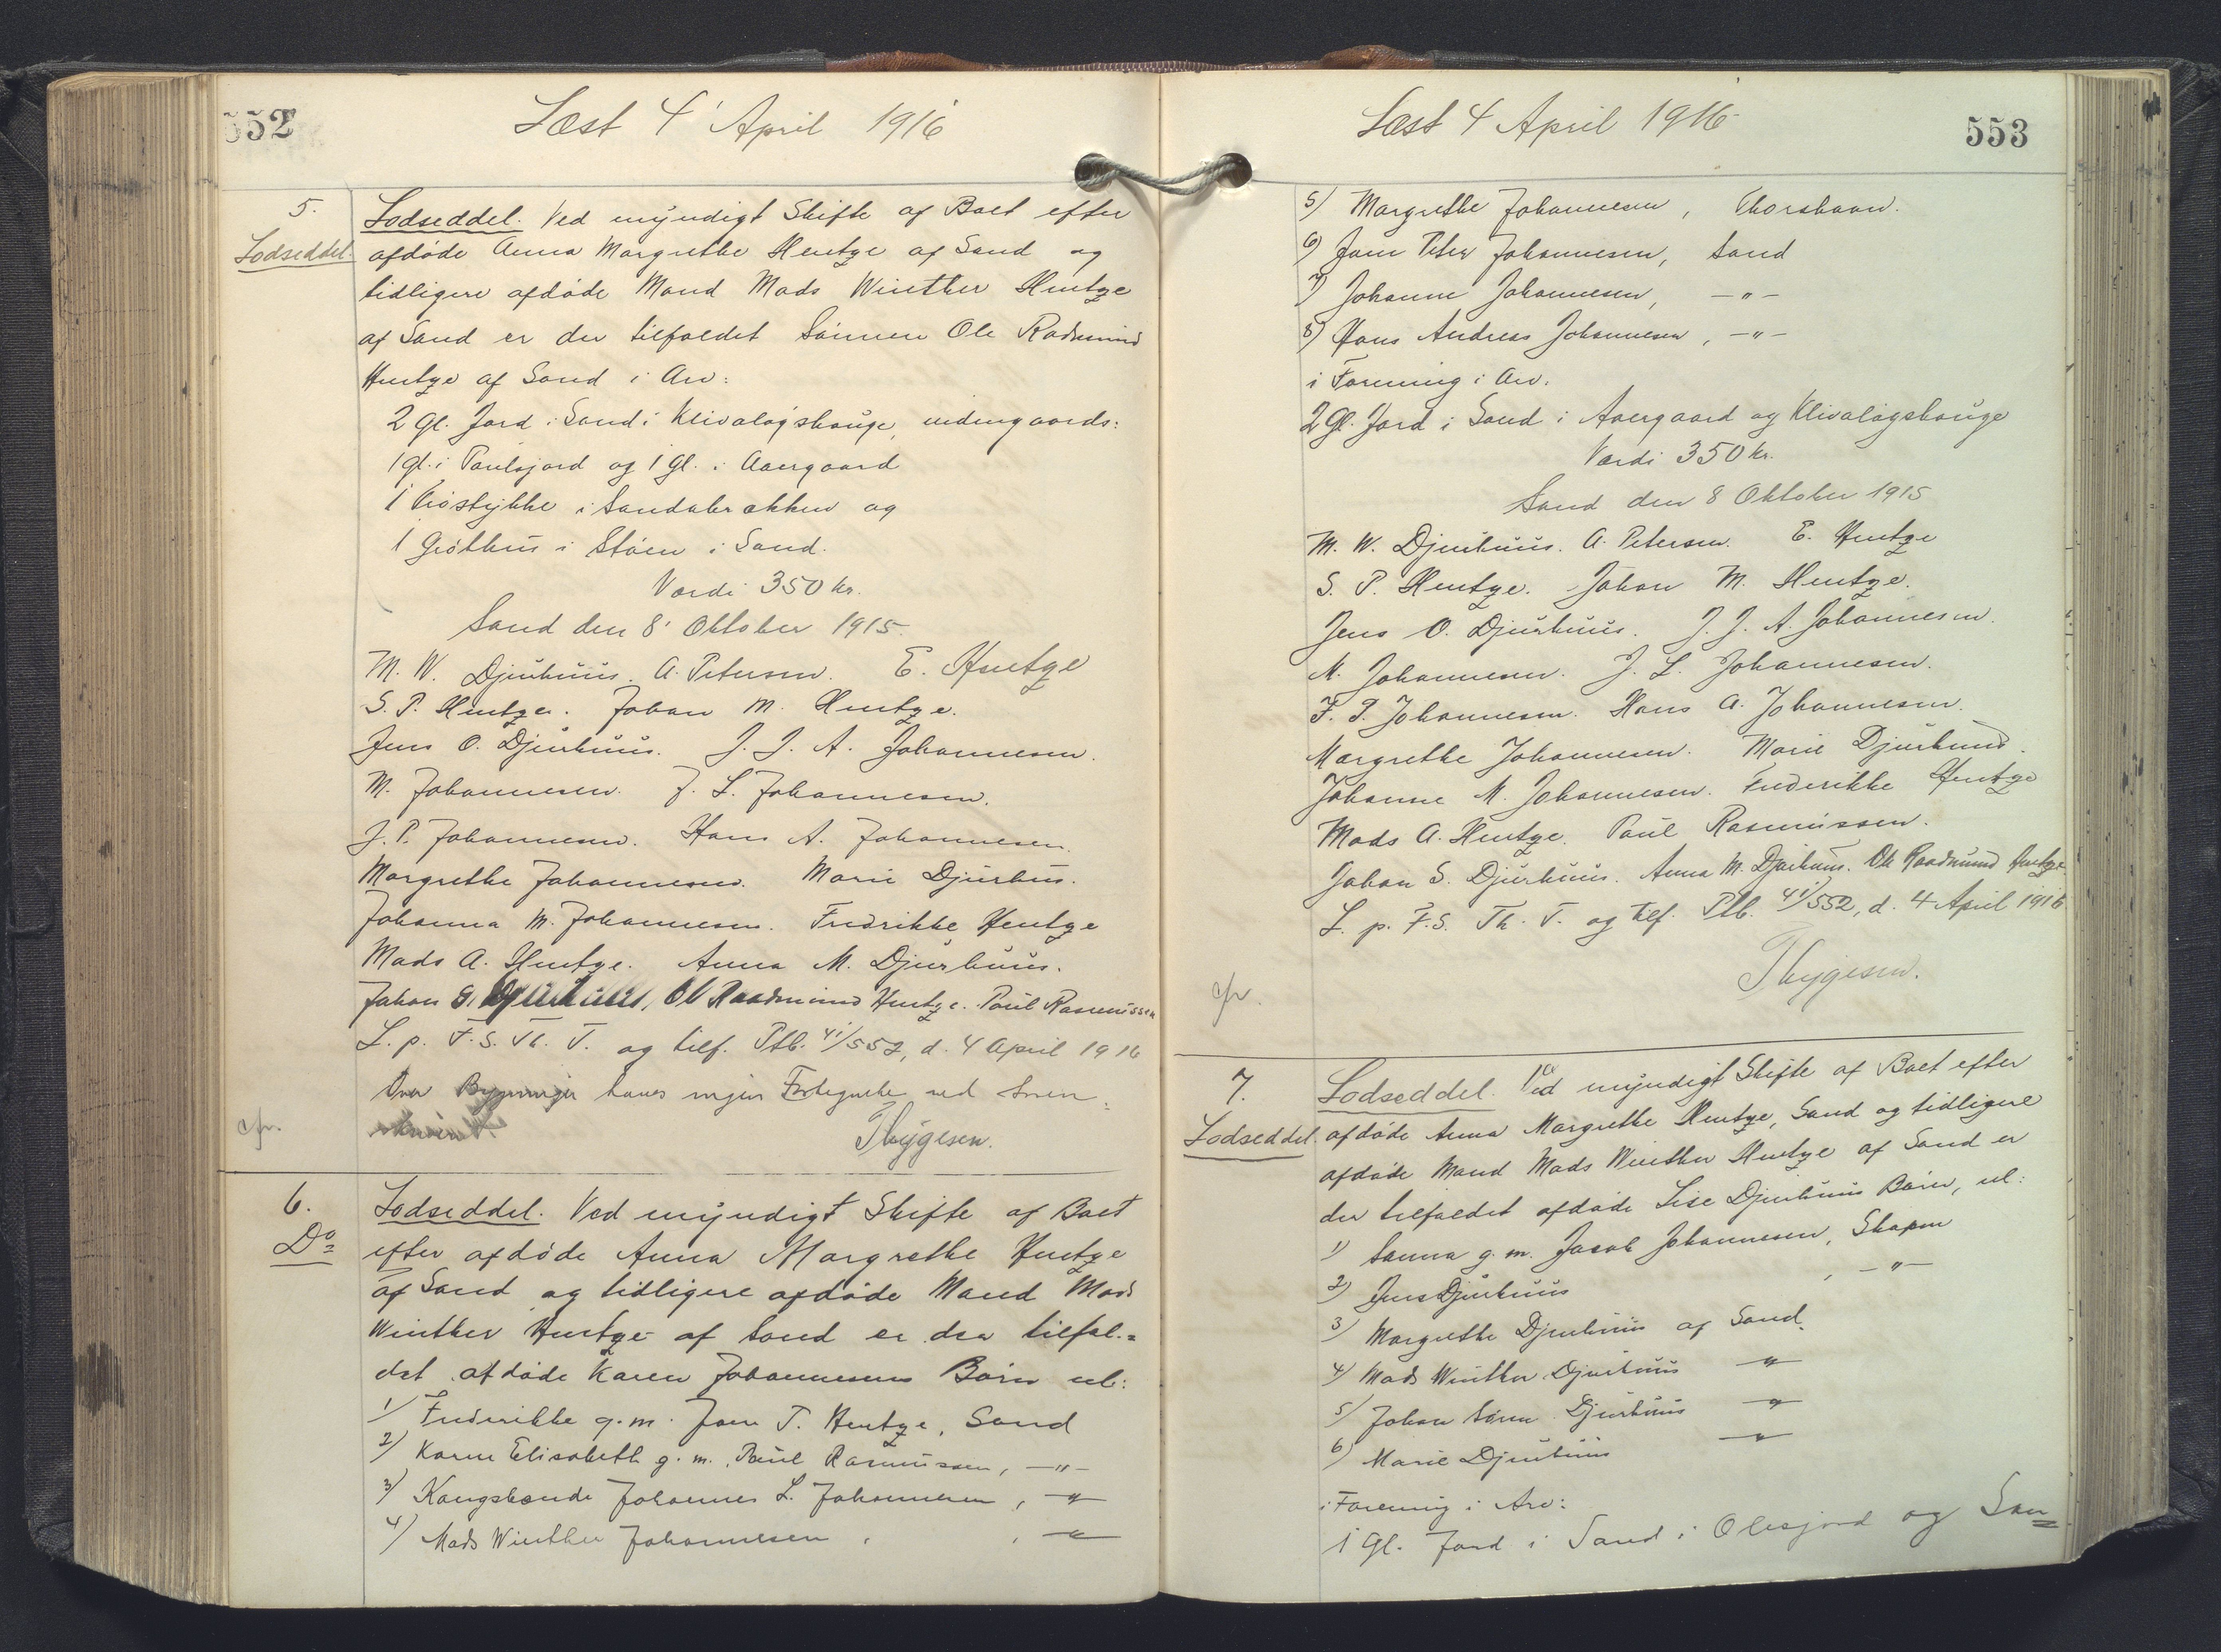 552
Læst 4' April 1916
5.
Lodseddel.
Lodseddel. Ved myndigt Skifte af Boet efter
afdøde Anna Margrethe Hentze af Sand og
tidligere afdøde Mand Mads Winther Hentze
af Sand er der tilfaldet Sønnen Ole Radmund
Hentze af Sand i Arv:
2 Gl. Jord i Sand i Klivaløgshauge, indengaards:
1 gl. i Poulsjord og 1 gl. i Aaergaard
1 Trøstykke i Sandabrækken og
1 Gróthús i Støen i Sand.
Værdi 350 kr.
Sand den 8' Oktober 1915.
M. W. Djurhuus. A. Petersen. E. Hentze
S. P. Hentze. Johan M. Hentze.
Jens O. Djurhuus. J. J. A. Johannesen.
M. Johannesen. J. L. Johannesen.
J. P. Johannesen. Hans A. Johannesen.
Margrethe Johannesen. Marie Djurhus.
Johanna M. Johannesen. Fredrikke Hentze
Mads A. Hentze. Anna M. Djurhuus.
Johan S. Djurhuus, Ol Raadmund Hentze. Poul Rasmussen
L. p. F. S. Th. T. og tilf. Ptb. 41/552, d. 4 April 1916
Over Bygninger haves ingen Fortegnelse ved Soren-
skriveriet
cfr.
Thygesen.
6.
Do
Lodseddel. Ved myndigt Skifte af Boet
efter afdøde Anna Margrethe Hentze
af Sand og tidligere afdøde Mand Mads
Winther Hentze af Sand er der tilfal-
det afdøde Karen Johannesens Børn nl:
1) Frederikke g. m. Joen T. Hentze, Sand
2) Karen Elisabeth g. m. Poul Rasmussen, —"—
3) Kongsbonde Johannes L. Johannesen, —"—
4) Mads Winther Johannesen, —"—
Læst 4 April 1916
553
5) Margrethe Johannesen, Thorshavn.
6) Joen Peter Johannesen, Sand
7) Johanne Johannesen, —"—
8) Hans Andreas Johannesen, —"—
i Forening i Arv.
2 Gl. Jord i Sand i Aaergaard og Klivaløgshauge
Værdi 350 kr.
Sand den 8 Oktober 1915
M. W. Djurhuus. A. Petersen. E. Hentze
S. P. Hentze. Johan M. Hentze.
Jens O. Djurhuus. J. J. A. Johannesen.
M. Johannesen. J. L. Johannesen.
J. P. Johannesen. Hans A. Johannesen.
Margrethe Johannesen. Marie Djurhuus.
Johanne M. Johannesen. Frederikke Hentze
Mads A. Hentze. Poul Rasmussen.
Johan S. Djurhuus. Anna M. Djurhuus. Ole Raadmund Hentze
L. p. F. S. Th. T. og tilf. Ptb. 41/552, d. 4 April 1916
cfr.
Thygesen.
7.
Lodseddel.
Lodseddel. Ved myndigt Skifte af Boet efter
afdøde Anna Margrethe Hentze, Sand og tidligere
afdøde Mand Mads Winther Hentze af Sand er
der tilfaldet afdøde Lise Djurhuus Børn, nl:
1) Sanna g. m. Jacob Johannesen, Skopun
2) Jens Djurhuus, —"—
3) Margrethe Djurhuus af Sand.
4) Mads Winther Djurhuus —"—
5) Johan Søren Djurhuus —"—
6) Marie Djurhuus —"—
i Forening i Arv:
1 Gl. Jord i Sand i Olesjord og San=